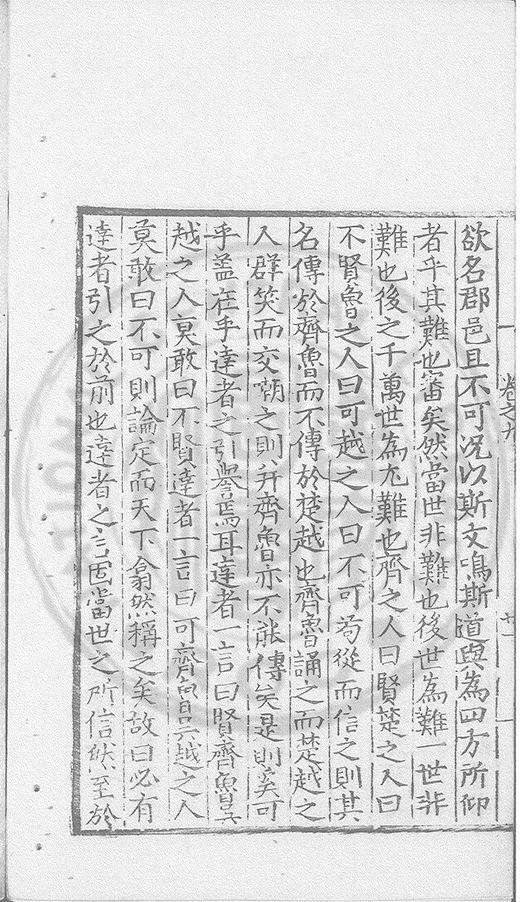 卷之九
廿一
欲名郡邑且不可況以斯文鳴斯道與為四方所仰
者乎其難也審矣然當世非難也後世為難一世非
難也後之千萬世為尤難也齊之人曰賢楚之人曰
不賢魯之人曰可越之人曰不可為從而信之則其
名傳於齊魯而不傳於楚越也齊魯誦之而楚越之
人群笑而交嘲之則并齊魯亦不能傳矣是則奚可
乎盖在乎達者之引譽焉耳達者一言曰賢齊魯吳
越之人莫敢曰不賢達者一言曰可齊魯吳越之人
莫敢曰不可則論定而天下翕然稱之矣故曰必有
達者引之於前也達者之言固當世之所信然至於